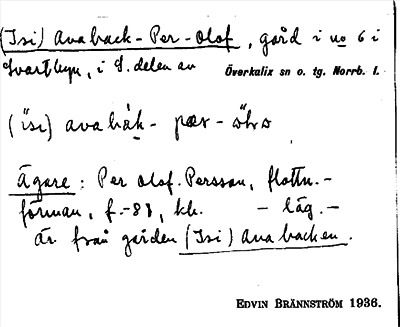 (Isi) Avaback-Per-Olof, gård i no 6 i
Svartbyn, i S. delen av Överkalix sn o. tg. Norrb. l.
(ìsi) avabàk- pær-
Ägare: Per Olof Persson, flottn.-
förman, f.-81, kk. - låg. -
är från gården (Isi) Avabacken.
EDVIN BRÄNNSTRÖM 1936.